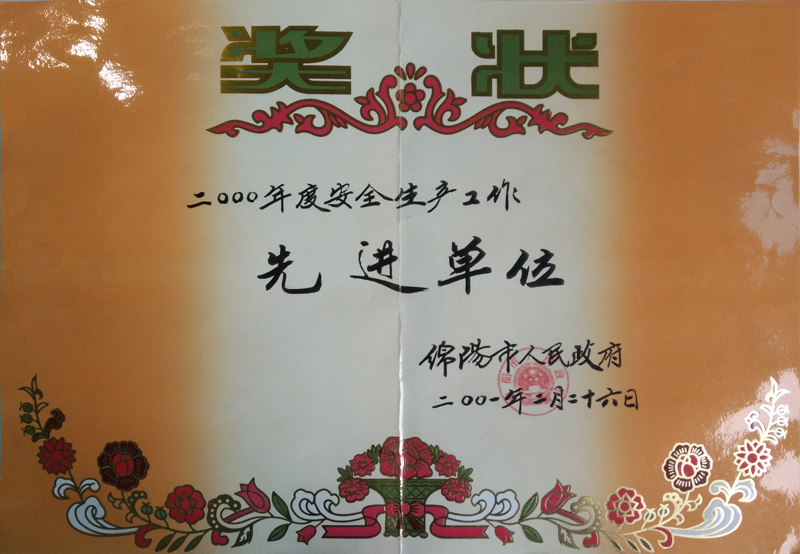 奖状
二〇〇〇年度安全生产工作
先进单位
绵阳市人民政府
二〇〇一年二月二十六日